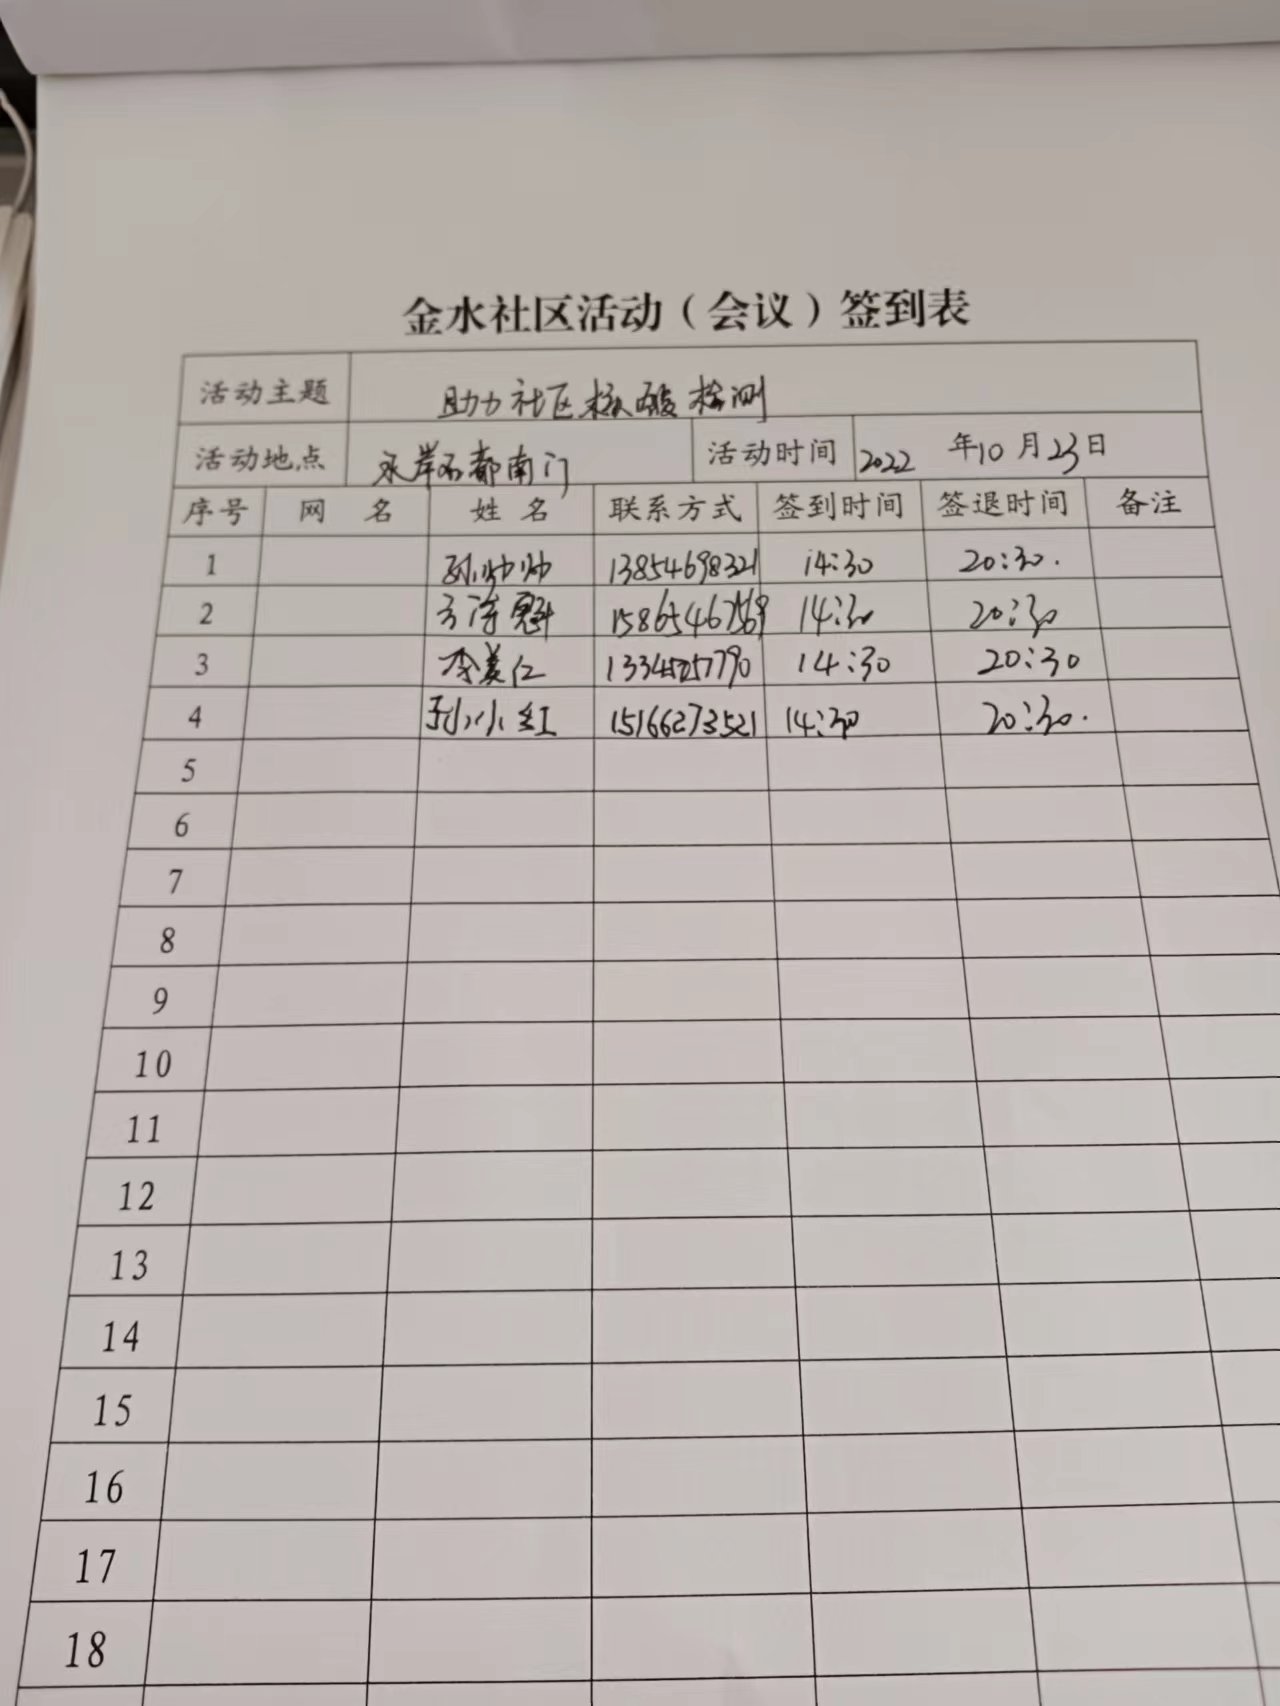 金水社区活动（会议）签到表
活动主题 助力社区核酸检测
活动地点 水岸名都南门 活动时间 2022 年10月23日
序号 网 名 姓 名 联系方式 签到时间 签退时间 备注
1 孙帅帅 13854698321 14:30 20:30.
2 15865467569 14:30 20:30
3 李美仁 14:30 20:30
4 孙小红 15166273521 14:30 20:30.
5
6
7
8
9
10
11
12
13
14
15
16
17
18